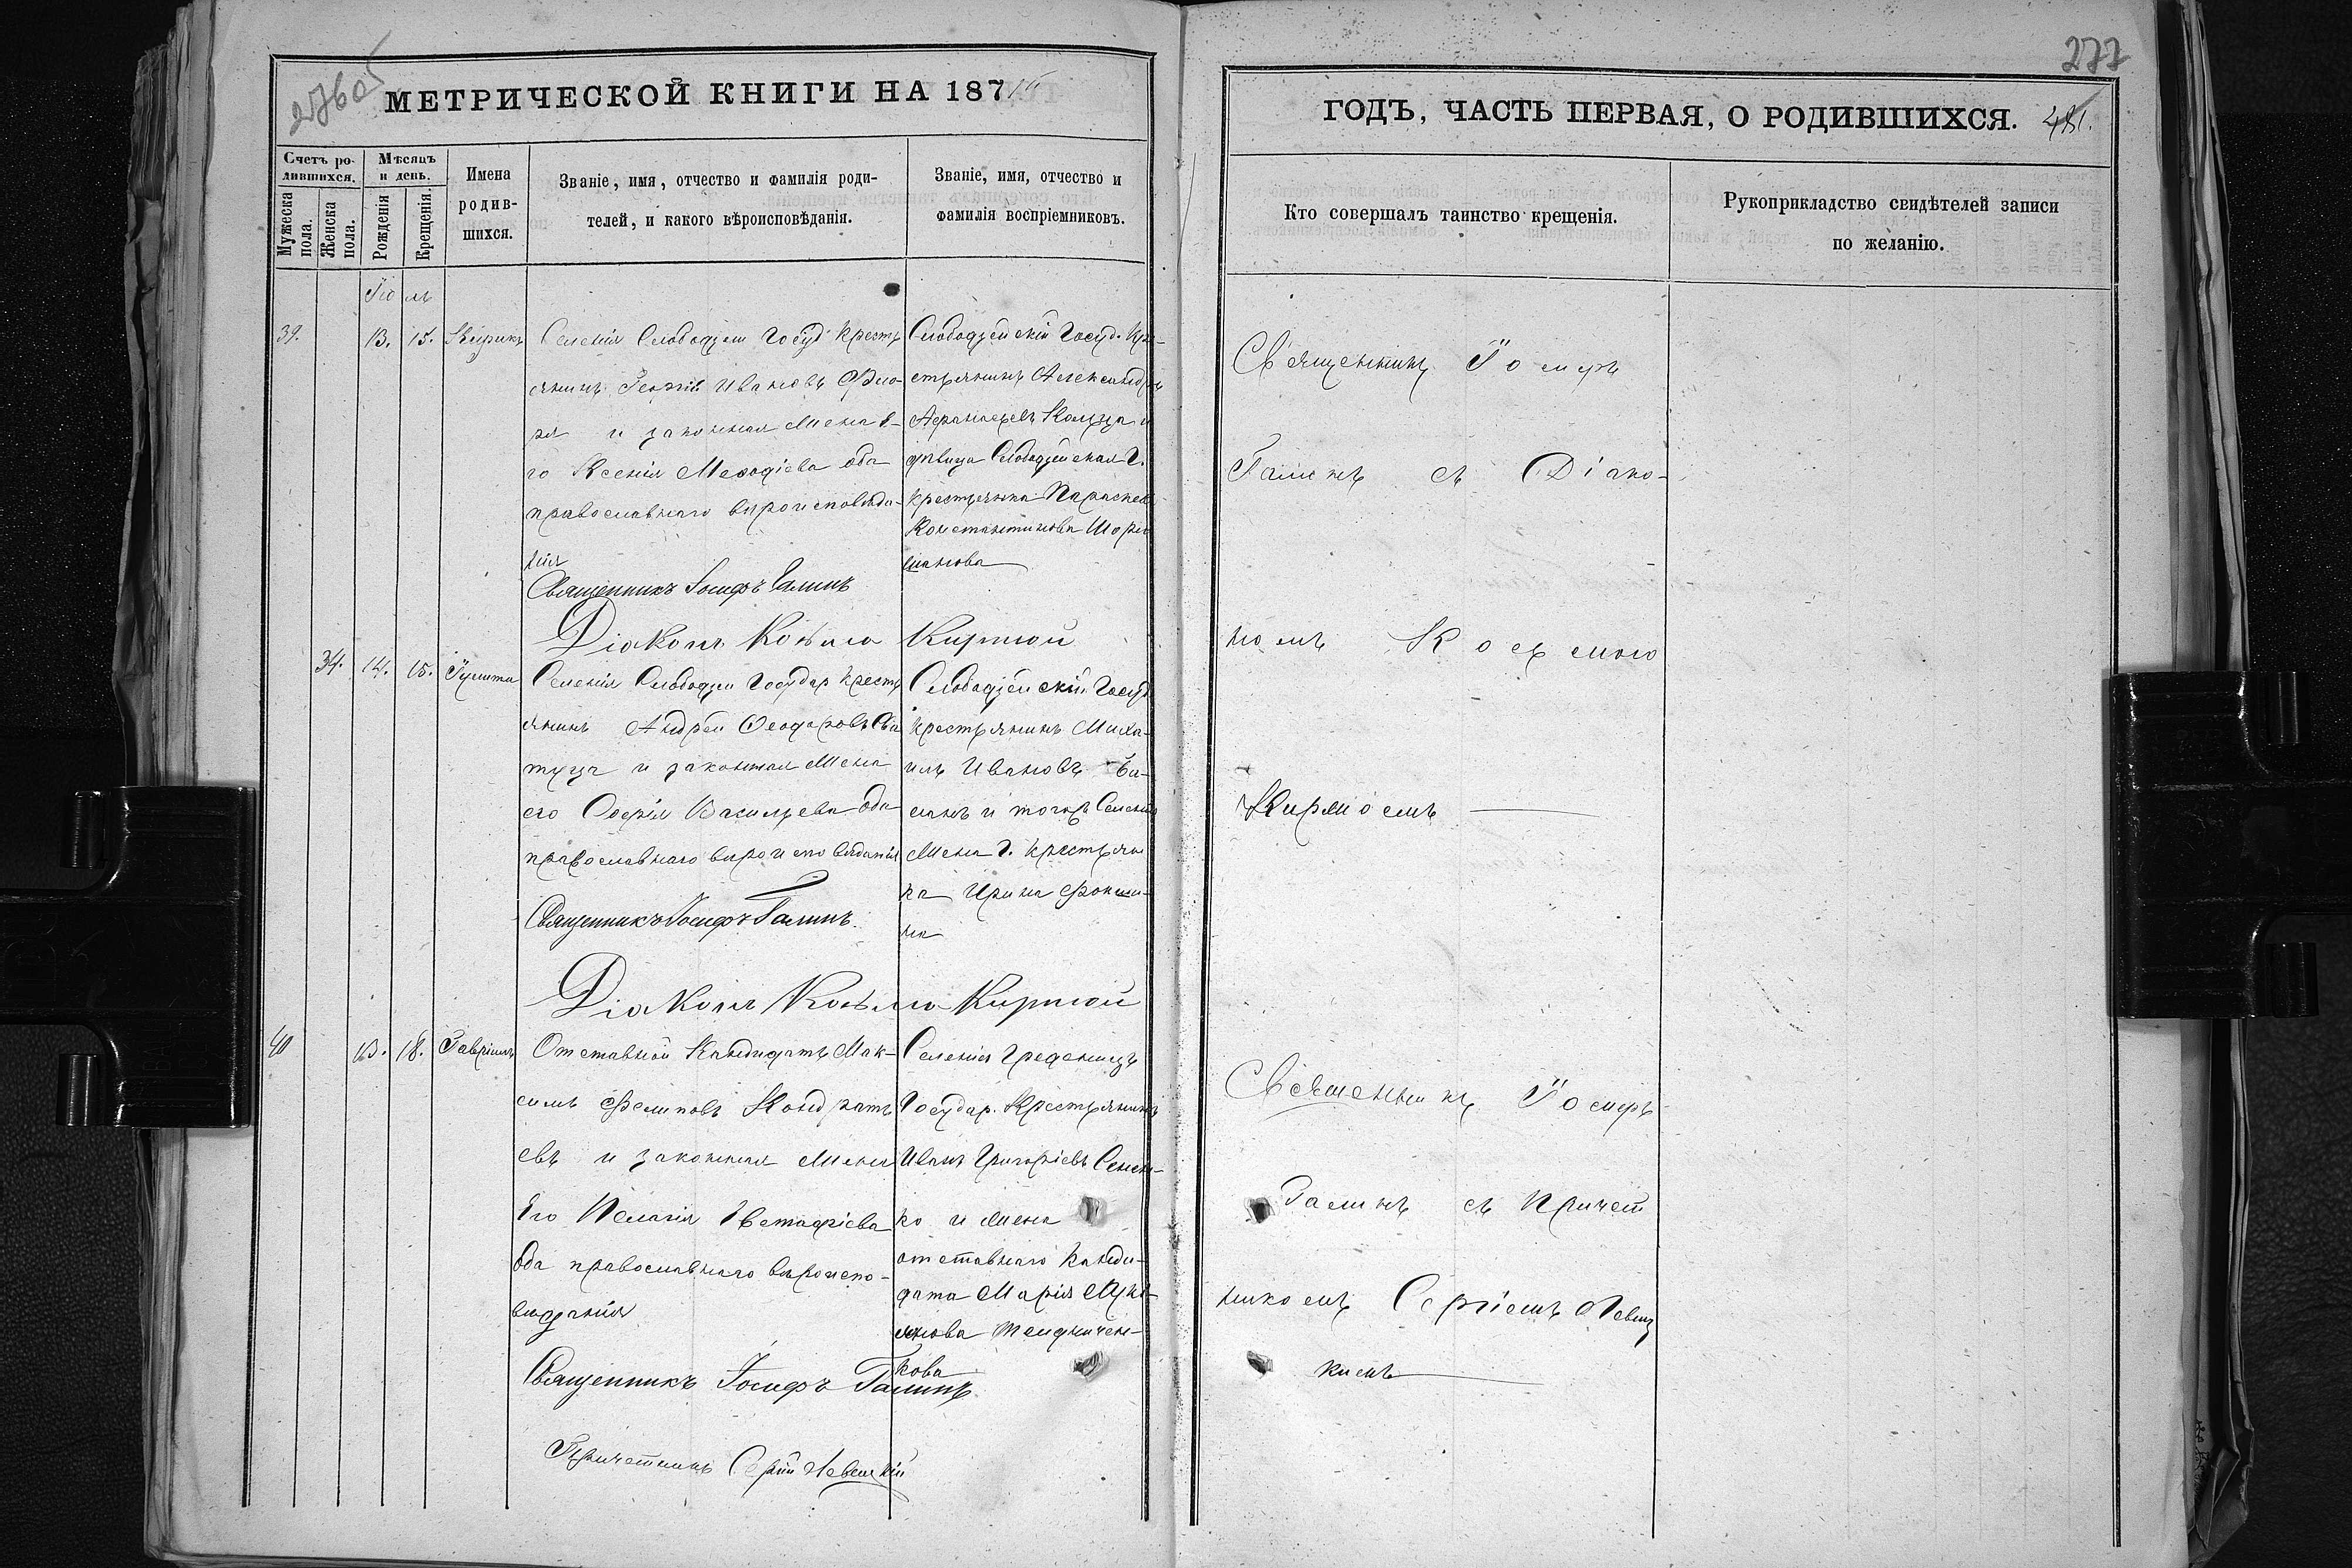 27605
277
МЕТРИЧЕСКОЙ КНИГИ НА 187
ГОДЪ, ЧАСТЬ ПЕРВАЯ, О РОДИВШИХСЯ. 481.
Счетъ ро-
дившихся.
Мужеска
пола.
Женска
пола.
Мѣсяцъ
и день.
Рожденія
Крещенія.
Имена
родив-
шихся.
Званіе, имя, отчество и фамилія роди-
телей, и какого вѣроисповѣданія.
Званіе, имя, отчество и
фамилія воспріемниковъ.
Кто совершалъ таинство крещенія.
Рукоприкладство свидѣтелей записи
по желанію.
Іюль
39. 13. 15. Кирикъ
Селенія Слободзеи Госуд Кресть
янинъ Георгій Ивановъ
и законная жена е-
го Ксенія Меѳодіева оба
православнаго вѣроисповѣда-
нія
Священникъ Іосифъ Галинъ
Діаконъ Косьма Кирмой
Слободзейскій Госуд. Кре-
стьянинъ Александръ
Афанасьевъ и
дѣвица Слободзейская Г.
крестьянка Параскева
Константинова
Священникъ Іосифъ
Галинъ съ Діако-
номъ Косьмою
Кирмоемъ
34. 14. 15. Іулита
Селенія Слободзеи Государ Кресть
янинъ Андрей Ѳеодоровъ
и законная жена
его Софія Васильева оба
православнаго вѣроисповѣданія
Священникъ Іосифъ Галинъ.
Діаконъ Косьма Кирмой
Слободзейскій Госуд
Крестьянинъ Миха-
илъ Ивановъ Ба-
санъ и тогожъ Селенія
жена Г. крестьян
ка Ирина
40 13. 18. Гавріилъ
Отставной Кандидатъ Мак-
симъ Филиповъ Кондрать
евъ и законная жена
Его Пелагія Евстафіева
оба православнаго вѣроиспо-
вѣданія
Священникъ Іосифъ Галинъ
Причетникъ Сергій Левицкій
Селенія Граденицъ
Государ. Крестьянинъ
Иванъ Григоріевъ Семен-
ко и жена
отставнаго Канди-
дата Марія
кова
Священникъ Іосифъ
Галинъ съ Причет
никомъ Сергіемъ Левиц
кимъ